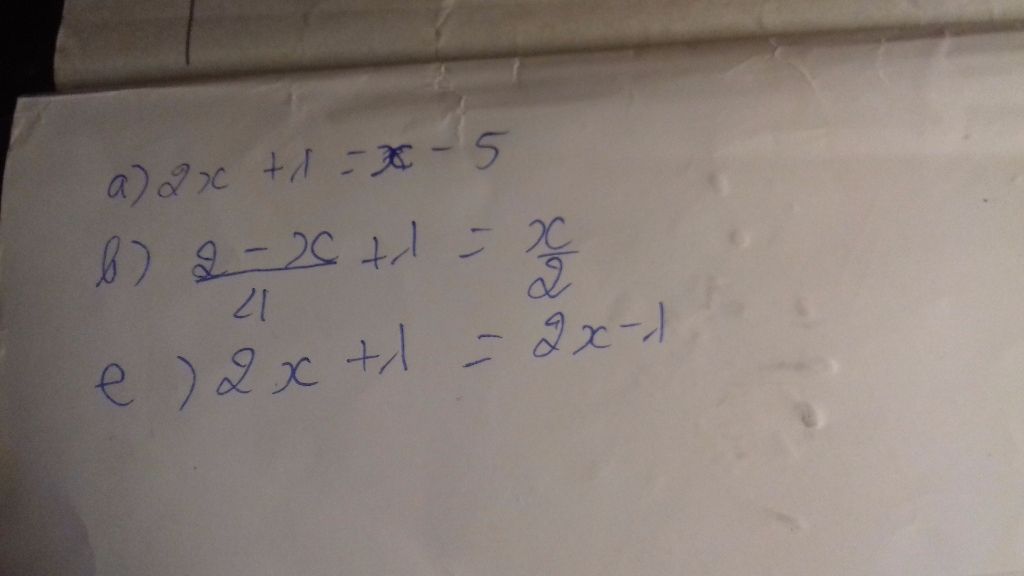 a) 2x + 1 = x - 5
b) \frac{2 - x}{4} + 1 = \frac{x}{2}
e) 2x + 1 = 2x - 1